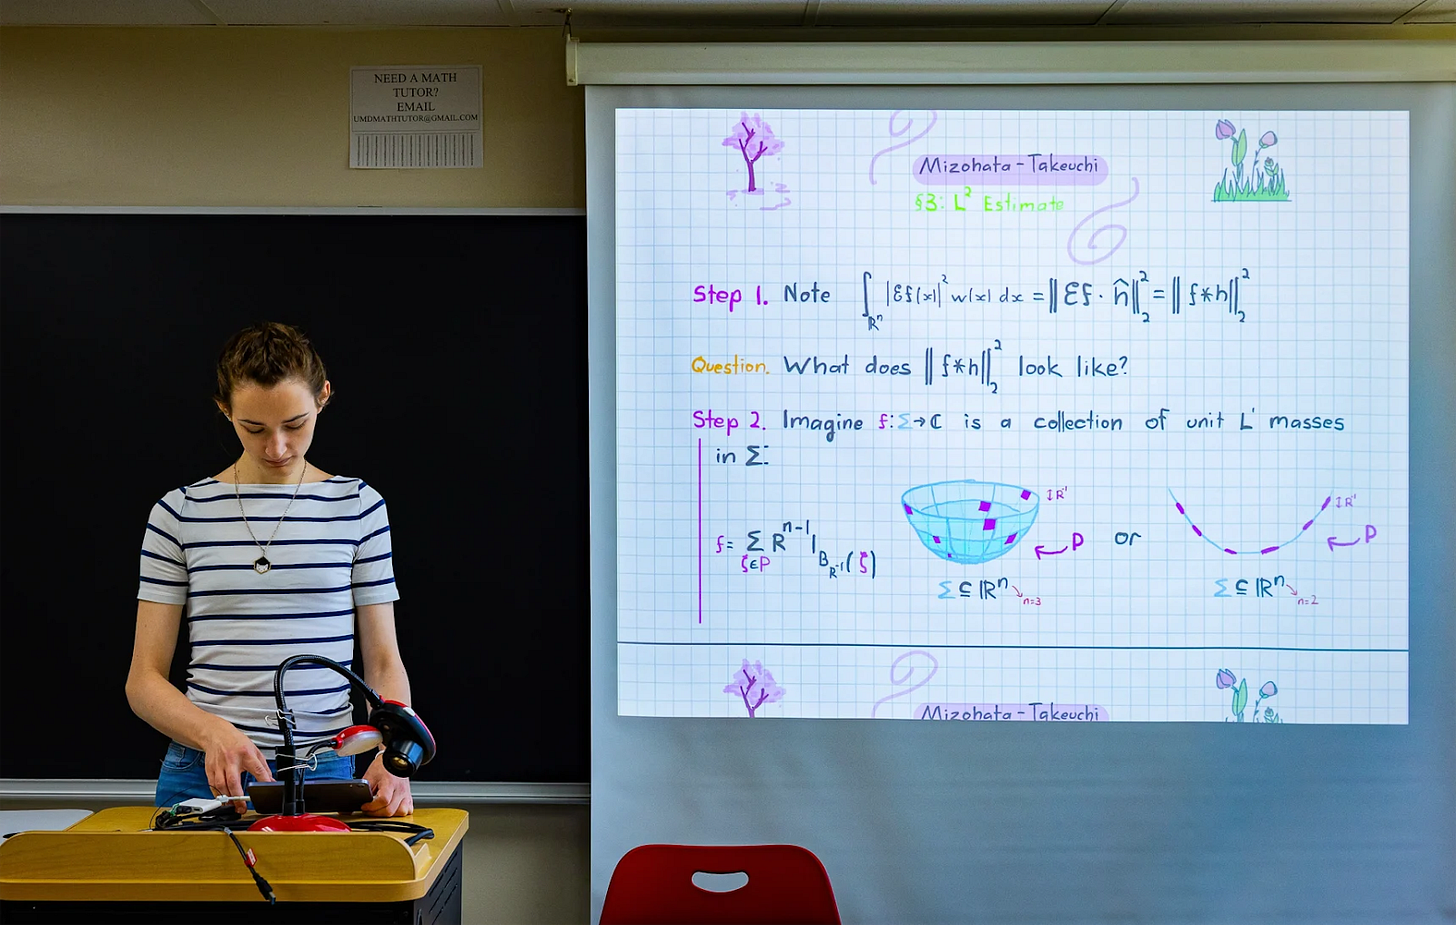 NEED A MATH
TUTOR?
EMAIL
UMDMATHTUTOR@GMAIL.COM
Mizohata-Takeuchi
§3: L² Estimate
Step 1. Note ∫_{ℝⁿ} |Ɛf(x)|² w(x) dx = ||Ɛf · ĥ||₂² = || f*h||₂²
Question. What does || f*h||₂² look like?
Step 2. Imagine f:Σ→ℂ is a collection of unit L¹ masses
in Σ:
f = Σ_{ζ∈P} R^{n-1} 1_{B_{R^{-1}}(ζ)}
↕R⁻¹
P
or
↕R⁻¹
P
Σ ⊆ ℝⁿ
n=3
Σ ⊆ ℝⁿ
n=2
Mizohata-Takeuchi